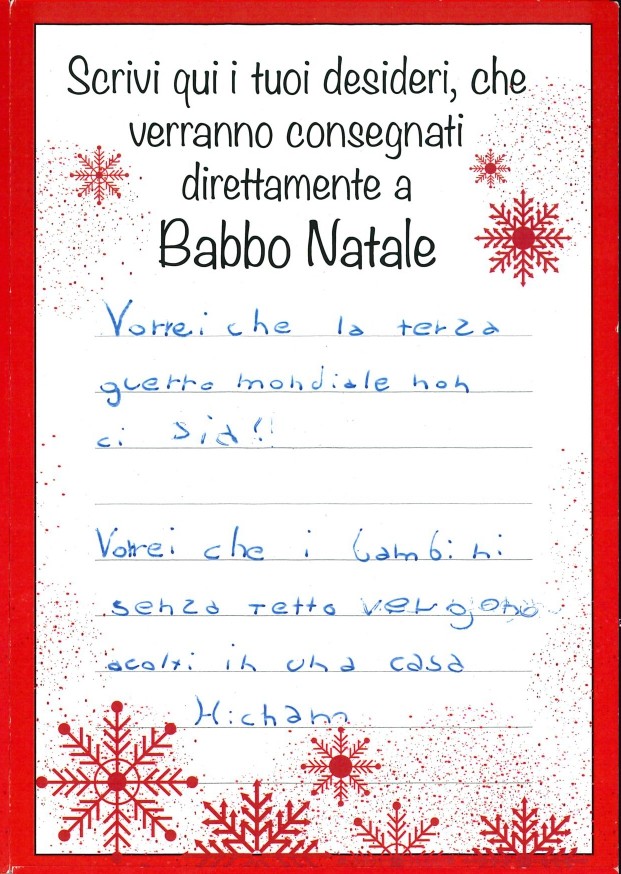 Scrivi qui i tuoi desideri, che
verranno consegnati
direttamente a
Babbo Natale
Vorrei che la terza
guerra mondiale non
ci sia!!
Vorrei che i bambini
senza tetto vengono
acolti in una casa
Hicham